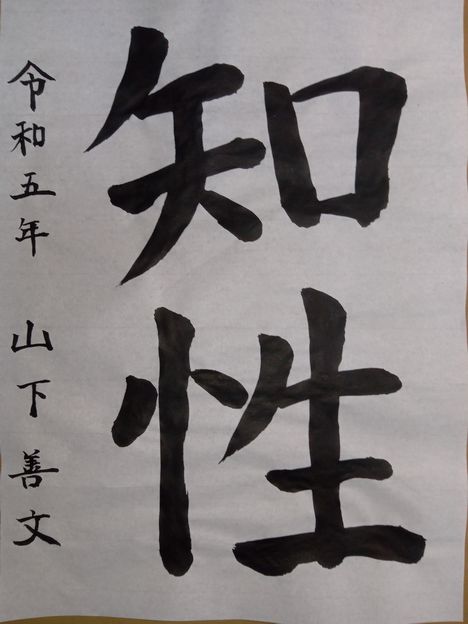 知性
令和五年 山下善文